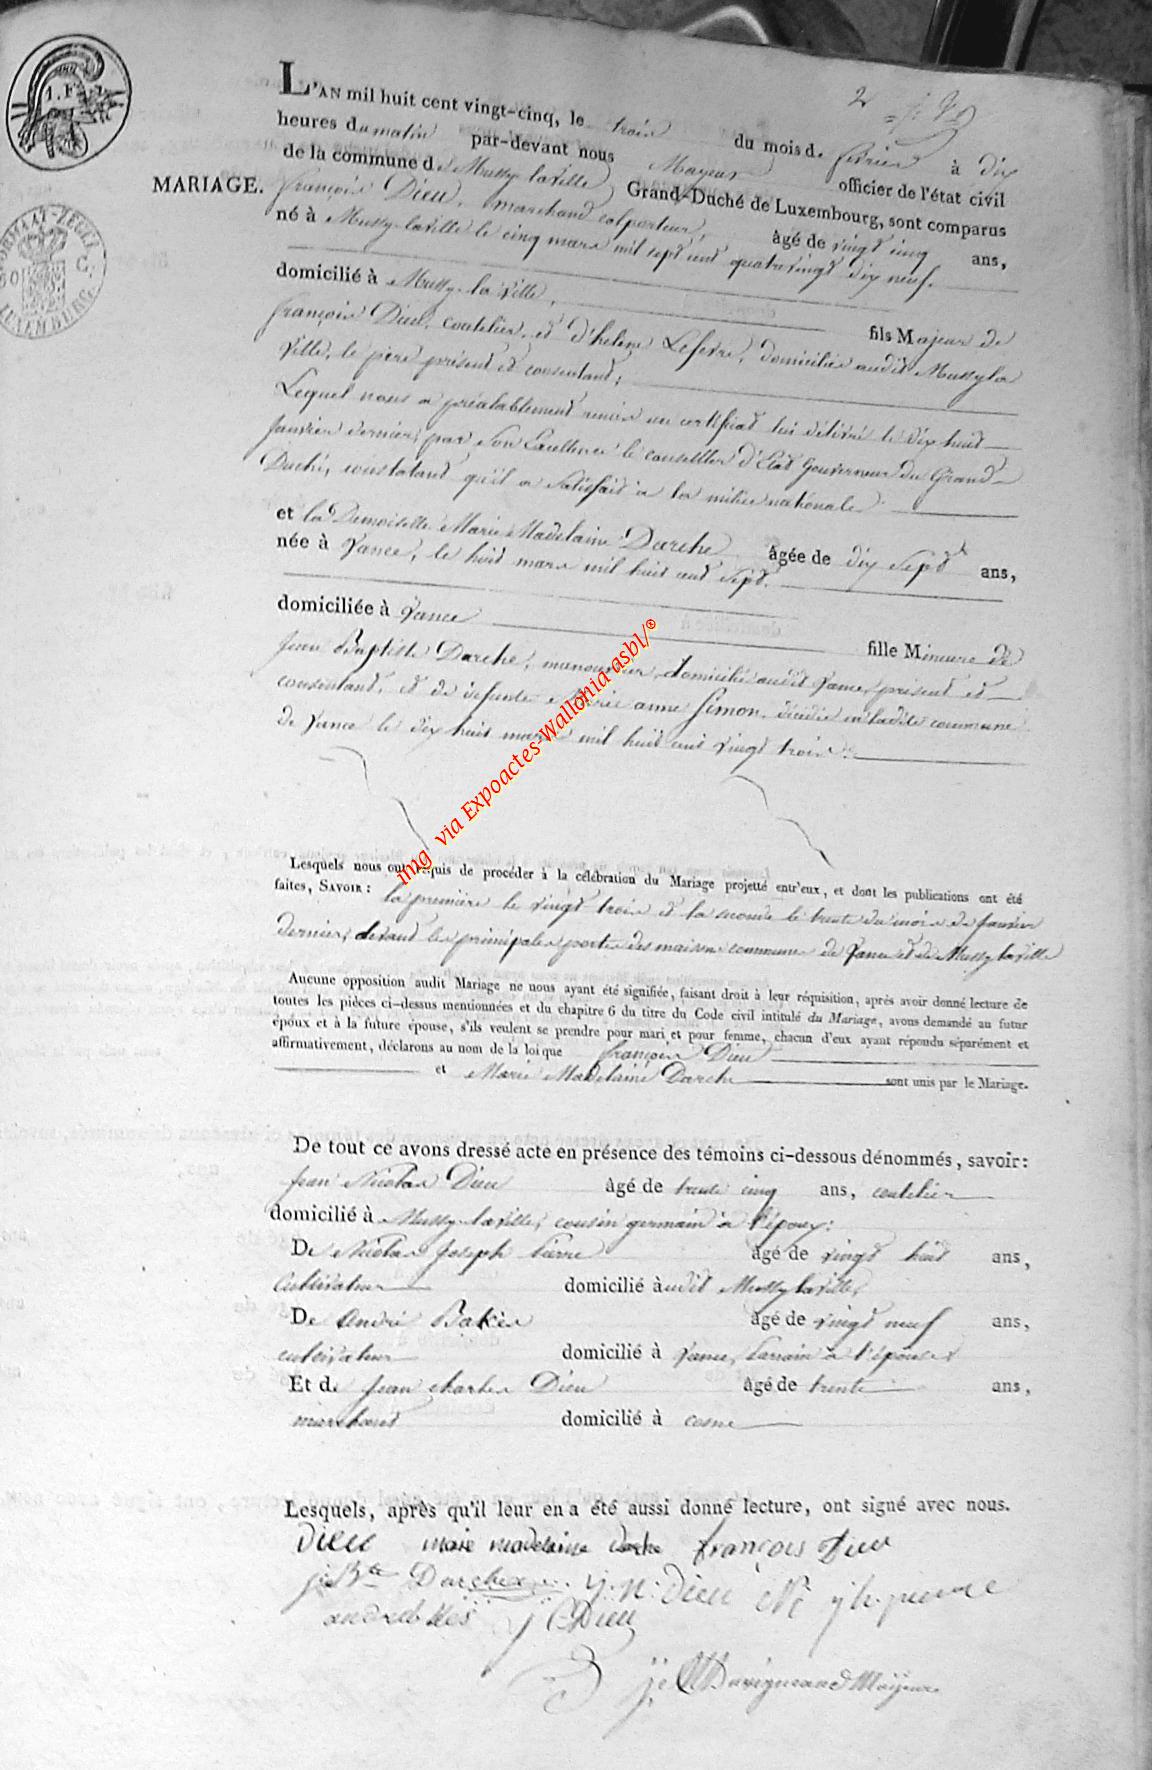 2
1. F
FORMAAT-ZEGEL
50 C.
LUXEMBURG.
MARIAGE.
L'AN mil huit cent vingt-cinq, le trois du mois de février à dix
heures du matin par-devant nous Mayeur officier de l'état civil
de la commune de Mussy laville Grand-Duché de Luxembourg, sont comparus
françois Dieu, marchand colporteur, âgé de vingt cinq ans,
né à Mussy-laville le cinq mars mil sept cent quatrevingt dix neuf.
domicilié à Mussy-la ville, fils Majeur de
françois Dieu, coutelier, et d'helene Lefevre, domiciliés audit Mussy la
ville, le père présent et consentant;
Lequel nous a préalablement remis un certificat lui délivré le dix huit
Janvier dernier, par Son Excellence le conseiller d'Etat Gouverneur du Grand-
Duché, constatant qu'il a satisfait à la milice nationale
et la Demoiselle Marie Madelaine Darche âgée de dix sept ans,
née à Vance, le huit mars mil huit cent sept.
domiciliée à Vance fille Mineure de
Jean Baptiste Darche, manouvrier, domicilié audit Vance, présent et
consentant, et de defunte Marie anne Simon, décédée en ladite commune
de Vance le dix huit mars mil huit cent vingt trois.
Lesquels nous ont requis de procéder à la célébration du Mariage projetté entr'eux, et dont les publications ont été
faites, SAVOIR : la première le vingt trois et la seconde le trente du mois de Janvier
dernier, devant les principales portes des maisons communes de Vance et de Mussy laville
Aucune opposition audit Mariage ne nous ayant été signifiée, faisant droit à leur réquisition, après avoir donné lecture de
toutes les pièces ci-dessus mentionnées et du chapitre 6 du titre du Code civil intitulé du Mariage, avons demandé au futur
époux et à la future épouse, s'ils veulent se prendre pour mari et pour femme, chacun d'eux ayant répondu séparément et
affirmativement, déclarons au nom de la loi que françois Dieu
et Marie Madelaine Darche sont unis par le Mariage.
De tout ce avons dressé acte en présence des témoins ci-dessous dénommés, savoir:
Jean Nicolas Dieu âgé de trente cinq ans, coutelier
domicilié à Mussy-laville, cousin germain à l'époux;
De Nicolas Joseph Pierre âgé de vingt huit ans,
Cultivateur domicilié audit Mussy laville,
De andré Bakès âgé de vingt neuf ans,
cultivateur domicilié à Vance, parrain à l'épouse
Et de Jean charles Dieu âgé de trente ans,
marchand domicilié à cosne
Lesquels, après qu'il leur en a été aussi donné lecture, ont signé avec nous.
Dieu marie madelaine darche françois Dieu
J. Bte Darche J. N. Dieu N. Jh. pierre
J C Dieu
Mayeur
img via Expoactes-Wallonia asbl/®